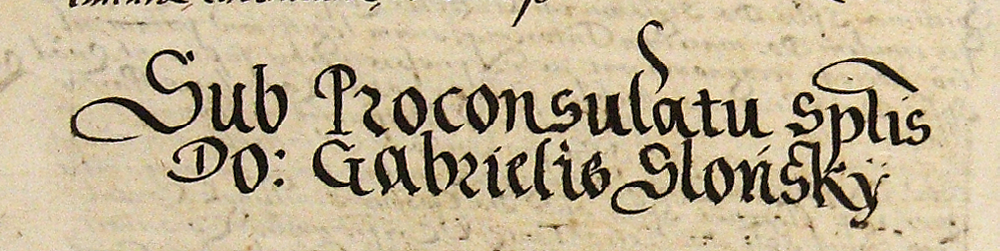 Sub Proconsulatu sptis
Do: Gabrielis Slońsky